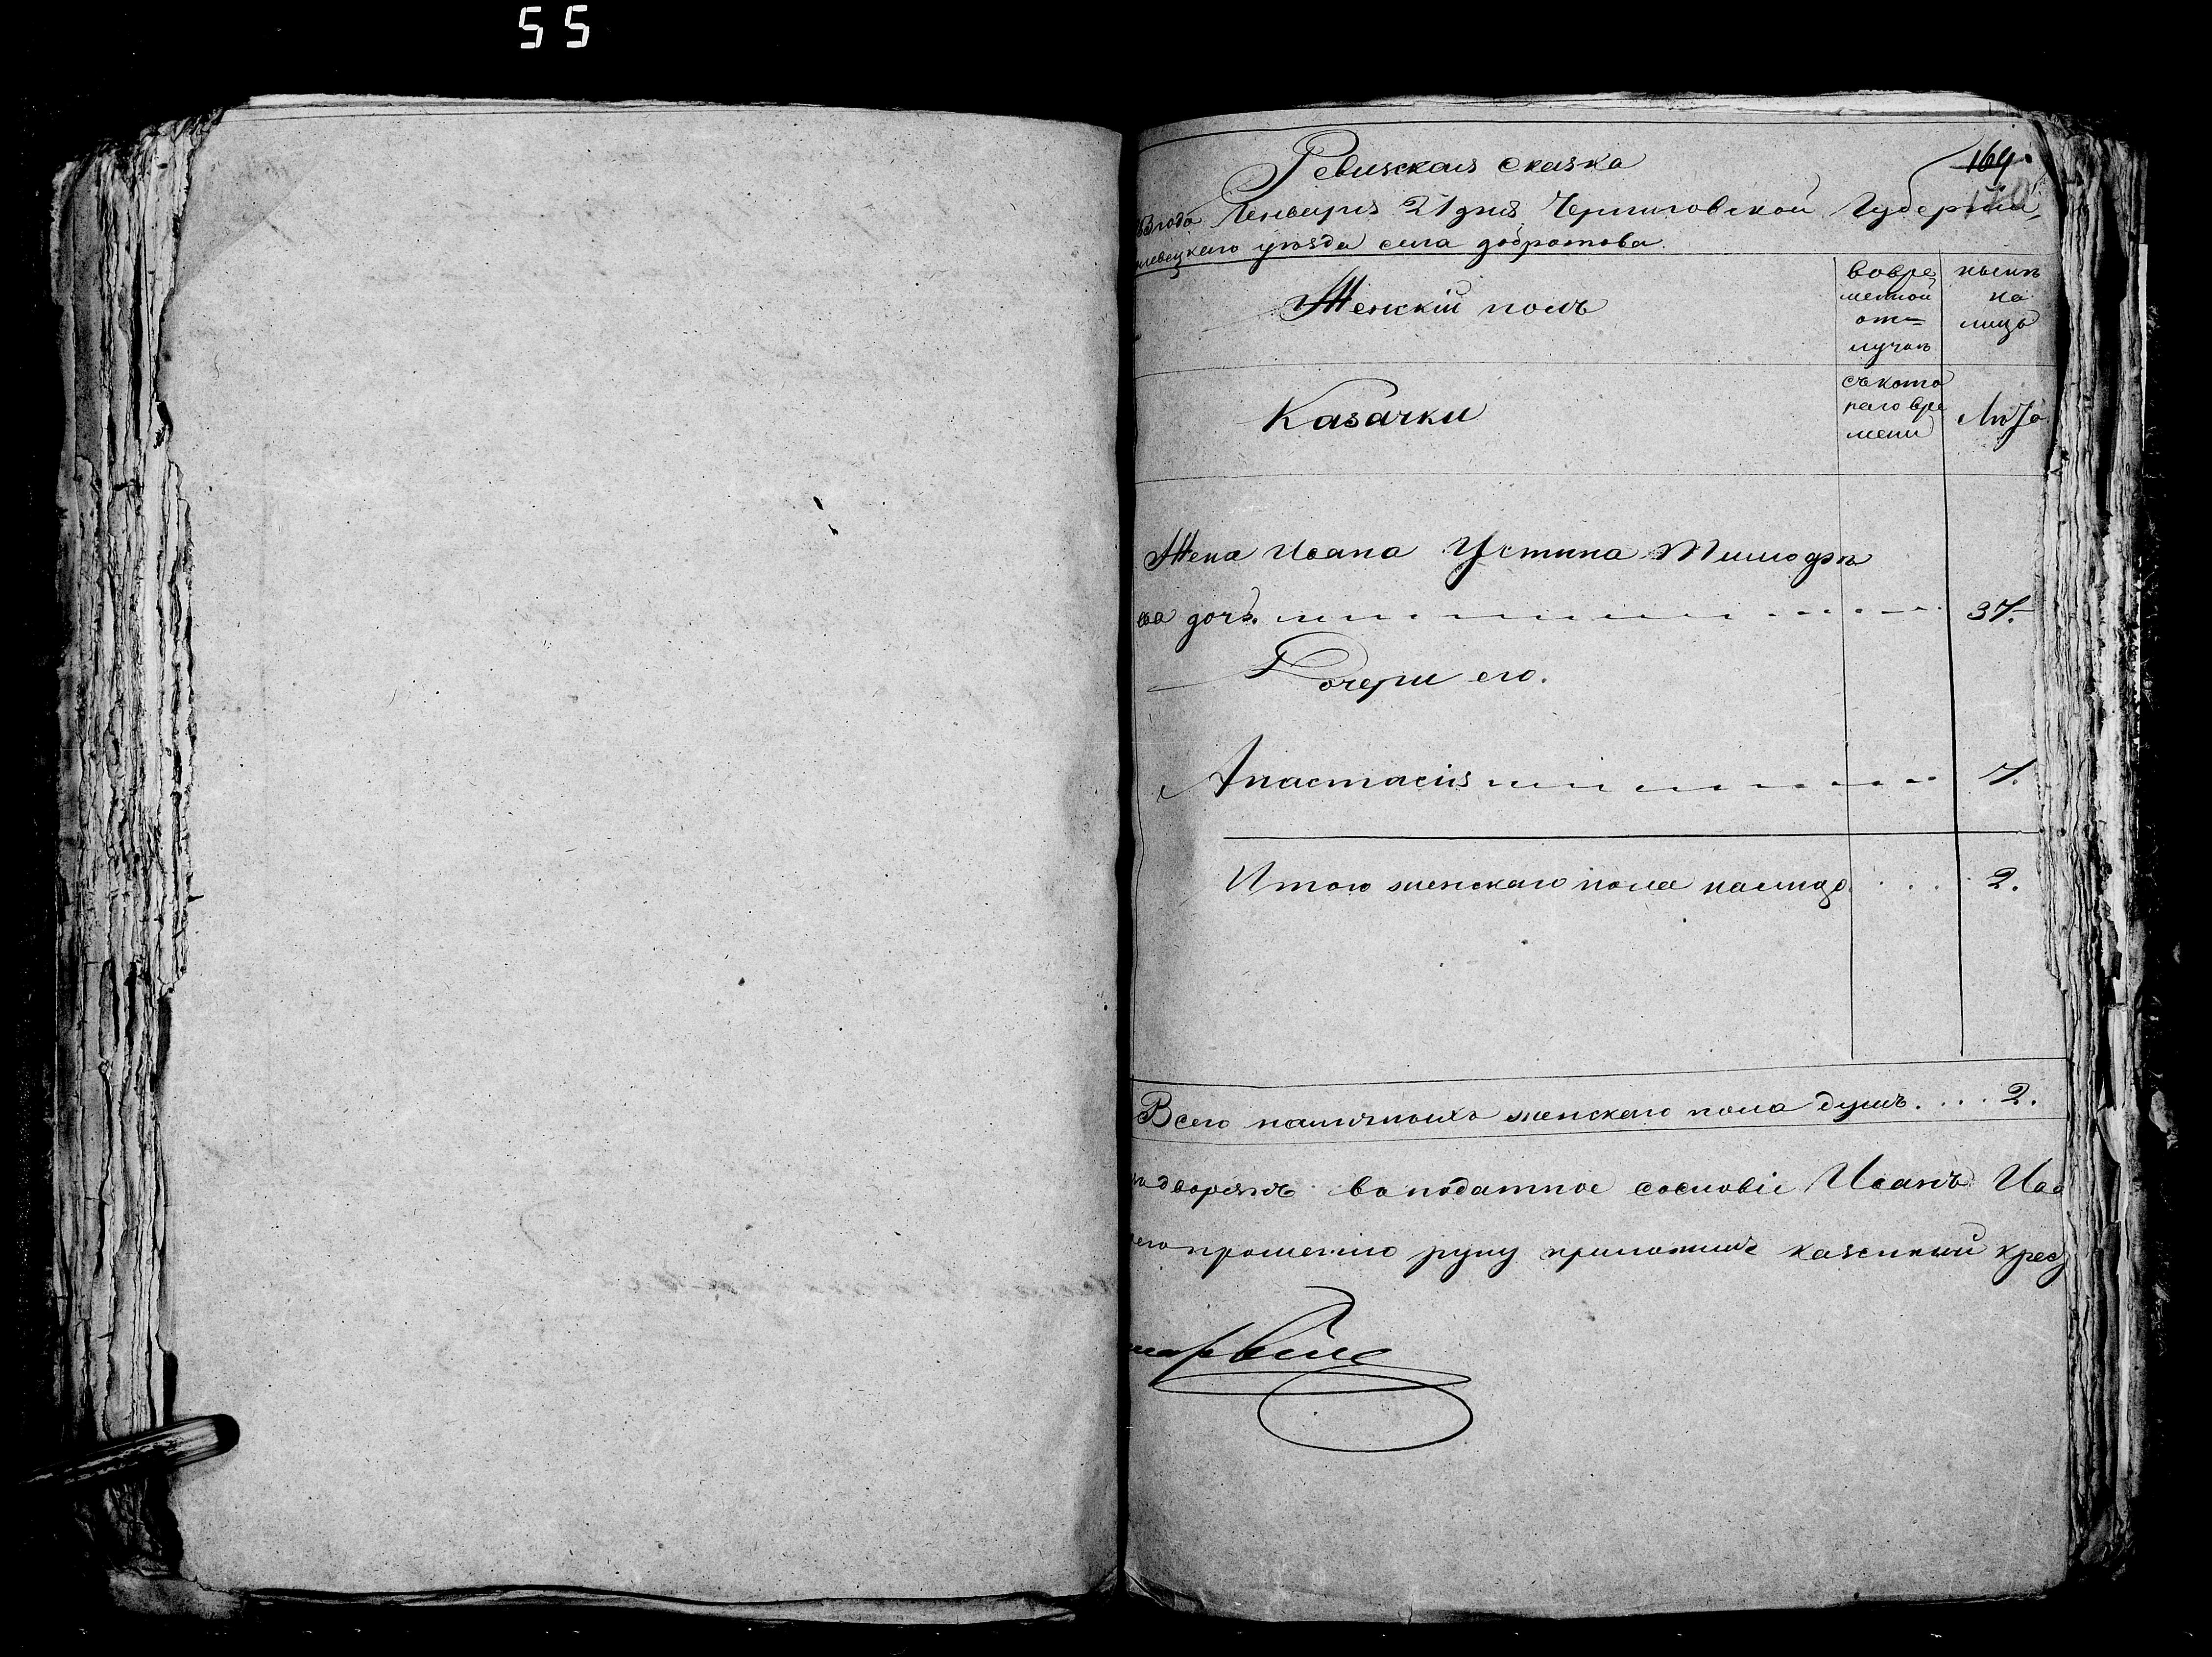 55
169.
Ревизская сказка
года Генваря 21 дня Черниговской Губерніи,
левецкаго уезда села добротова.
Женскій полъ
вовре
менной
от=
лучкѣ
ныннѣ
на
лицо
Казачки
съкото
раго вре
мени
Лѣта
Жена Ивана Устина Тимофѣ
ева дочь. 37.
Дочери его.
Анастасія 7.
Итого женскаго пола налицо . . . . 2.
Всего наличныхъ женскаго пола душъ. . . . 2.
дворянъ въ податное сословіе Иванъ Ива
его прошенію руку приложилъ казенный крес